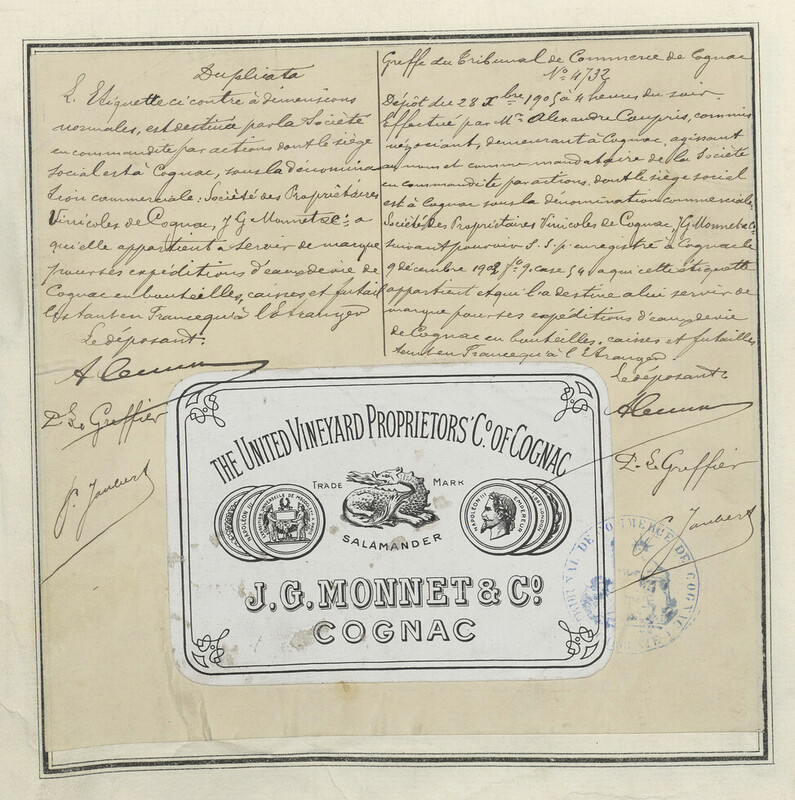 Duplicata
L'Etiquette ci contre à dimensions
normales, est destinée par la Société
en commandite par actions dont le siège
social est à Cognac, sous la dénomina
tion commerciale: Société des Propriétaires
Vinicoles de Cognac, J G Monnet & Cie a
qu'elle appartient à servir de marque
pour ses expéditions d'eaux de vie de
Cognac en bouteilles, caisses et futail
les tant en France qu'à l'étranger
Le déposant.
P. Le Greffier
Joubert
Greffe du Tribunal de Commerce de Cognac
No 4732
Dépôt du 28 Xbre 1905 à 4 heures du soir
Effectué par Mr Alexandre Coupris, commis
négociant, demeurant à Cognac, agissant
au nom et comme mandataire de la Société
en commandite par actions, dont le siège social
est à Cognac sous la dénomination commerciale
Société des Propriétaires Vinicoles de Cognac, J G Monnet & Cie
suivant pouvoir S. S. p. enregistré à Cognac le
9 décembre 1902 fo 9. case 54 a qui cette étiquette
appartient et qui l'a destine a lui servir de
marque pour ses expéditions d'eaux de vie
de Cognac en bouteilles, caisses et futailles
tant en France qu'à l'Etranger
Le déposant
P. Le Greffier
Joubert
THE UNITED VINEYARD PROPRIETORS' Co. OF COGNAC
TRADE MARK
NAPOLEON III EMPEREUR
SALAMANDER
J.G. MONNET & Co.
COGNAC
TRIBUNAL DE COMMERCE DE COGNAC